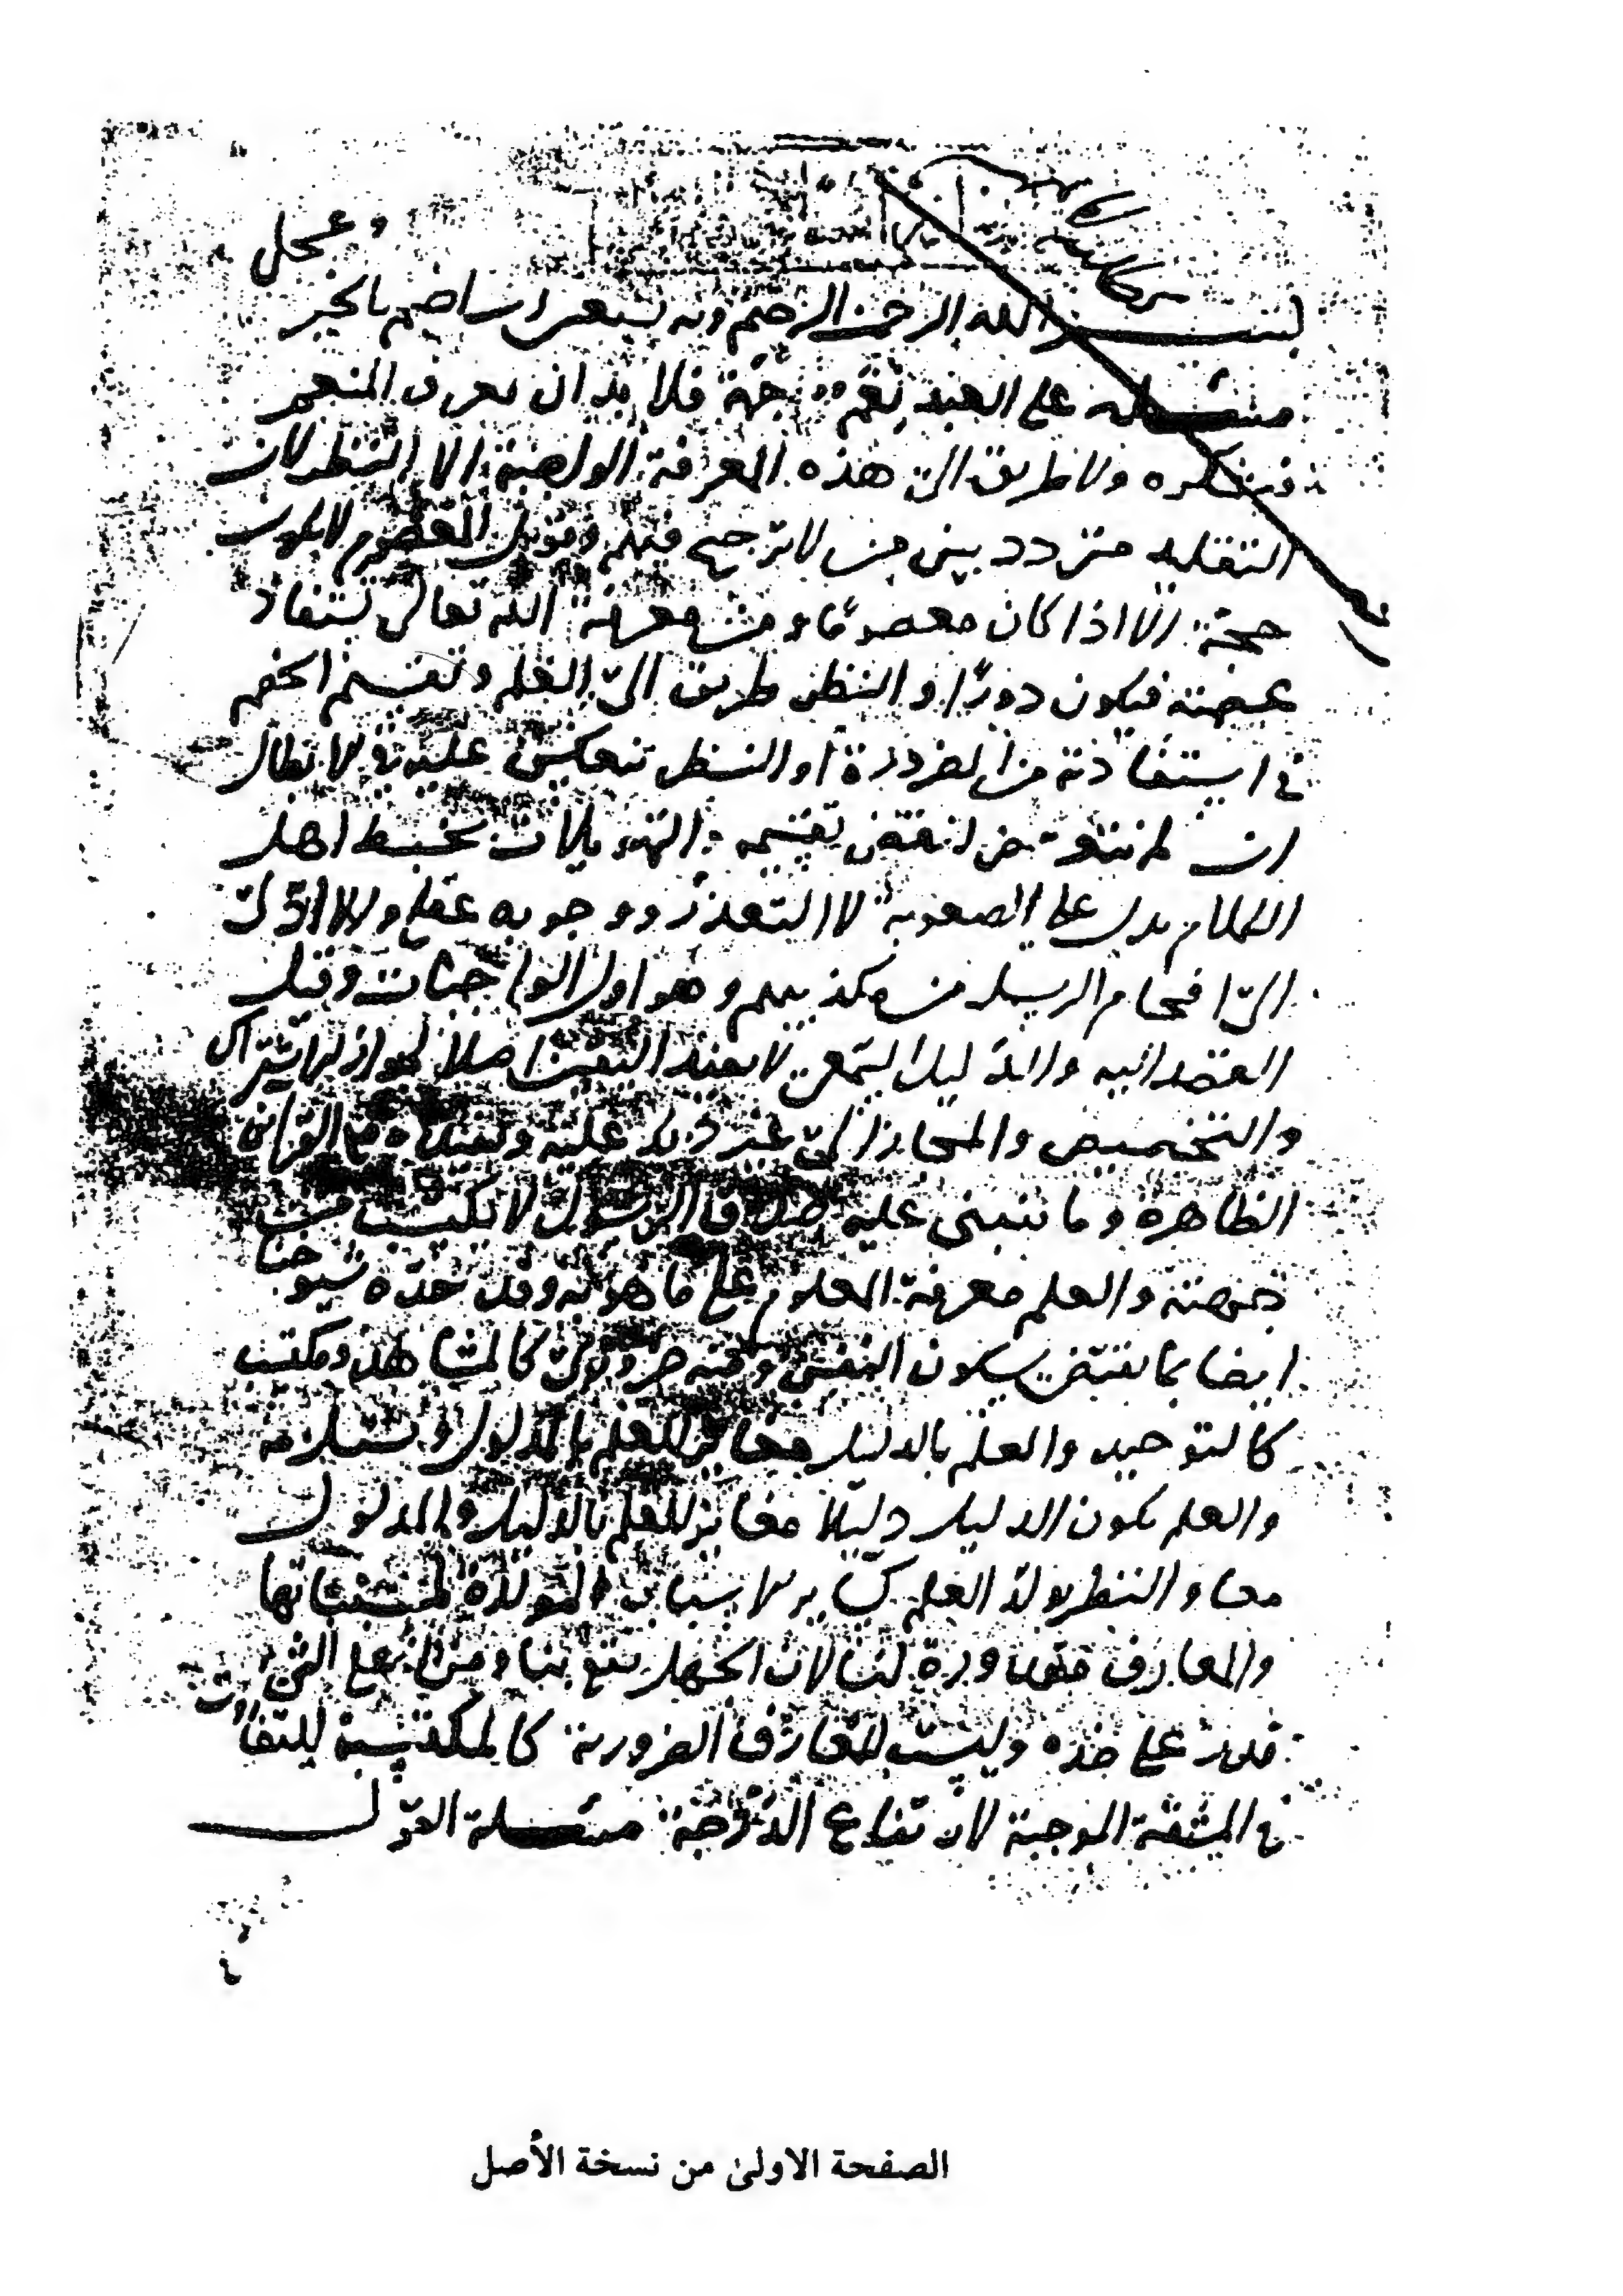 وعجل
بسم الله الرحمن الرحيم وبه نستعين رب اختم بالخير
مسئلة على العبد نعم جمة فلا بد ان يعرف المنعم
فيشكره ولا طريق الى هذه المعرفة الواجبة الا النظر لان
التقليد متردد بين من لا ترجيح فيهم وقول المعصوم لا يكون
حجة الا اذا كان معصوما ومن معرفة الله تعالى تستفاد
عصمته فيكون دورا والنظر طريق الى العلم وتقسيم الخصم
في استفادته من الضرورة او النظر ينعكس عليه في الابطال
ان لم ينتقض تقسيمه والتهويلات بخبط اهل
الكلام يدل على الصعوبة لا التعذر ووجوبه عقلي ولا ادى
الى افحام الرسل من مكذبيهم وهو اول الواجبات وقيل
القصد اليه والدليل السمعي لا يفيد اليقين اصلا لجواز الاشتراك
والتخصيص والمجاز الى غير ذلك عليه القرائن
الظاهرة وما ينبني عليه صدق الرسول لا يكتسب من
جهته والعلم معرفة المعلوم على ما هو به وقد حده شيوخنا
ايضا بما يقتضي سكون النفس ومنه ضروري كالمشاهد ومكتسب
كالتوحيد والعلم بالدليل مغاير للعلم بالمدلول ويستلزمه
والعلم بكون الدليل دليلا مغاير للعلم بالدليل والمدلول
معا والنظر يولد العلم كسائر الاسباب المولدة لمسبباتها
والمعارف مقدورة لنا لان الجهل يقع بنا ومن قدر على الشيء
قدر على ضده وليست المعارف الضرورية كالمكتسبة للتفاوت
في المشقة الموجبة لارتفاع الدرجة مسئلة القول
الصفحة الاولى من نسخة الأصل